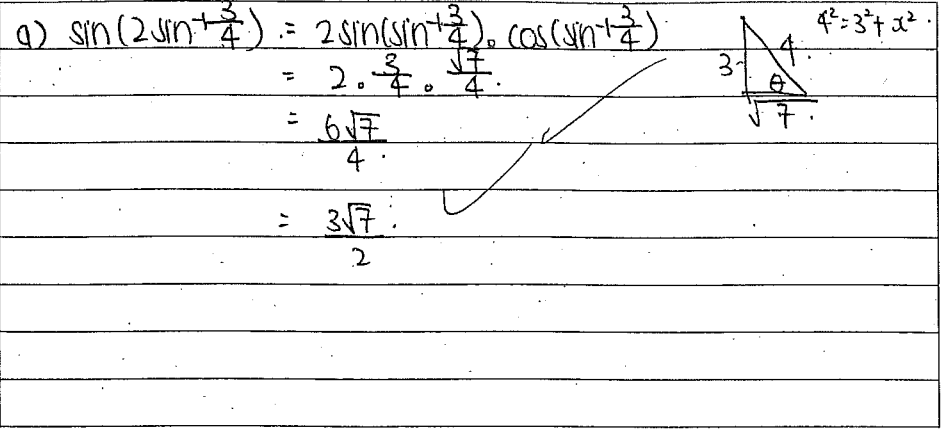 a) sin(2sin⁻¹ 3/4) = 2sin(sin⁻¹ 3/4). cos(sin⁻¹ 3/4)
= 2 . 3/4 . √7/4.
= 6√7/4.
= 3√7/2.
4² = 3² + x².
3
4.
θ
√7.